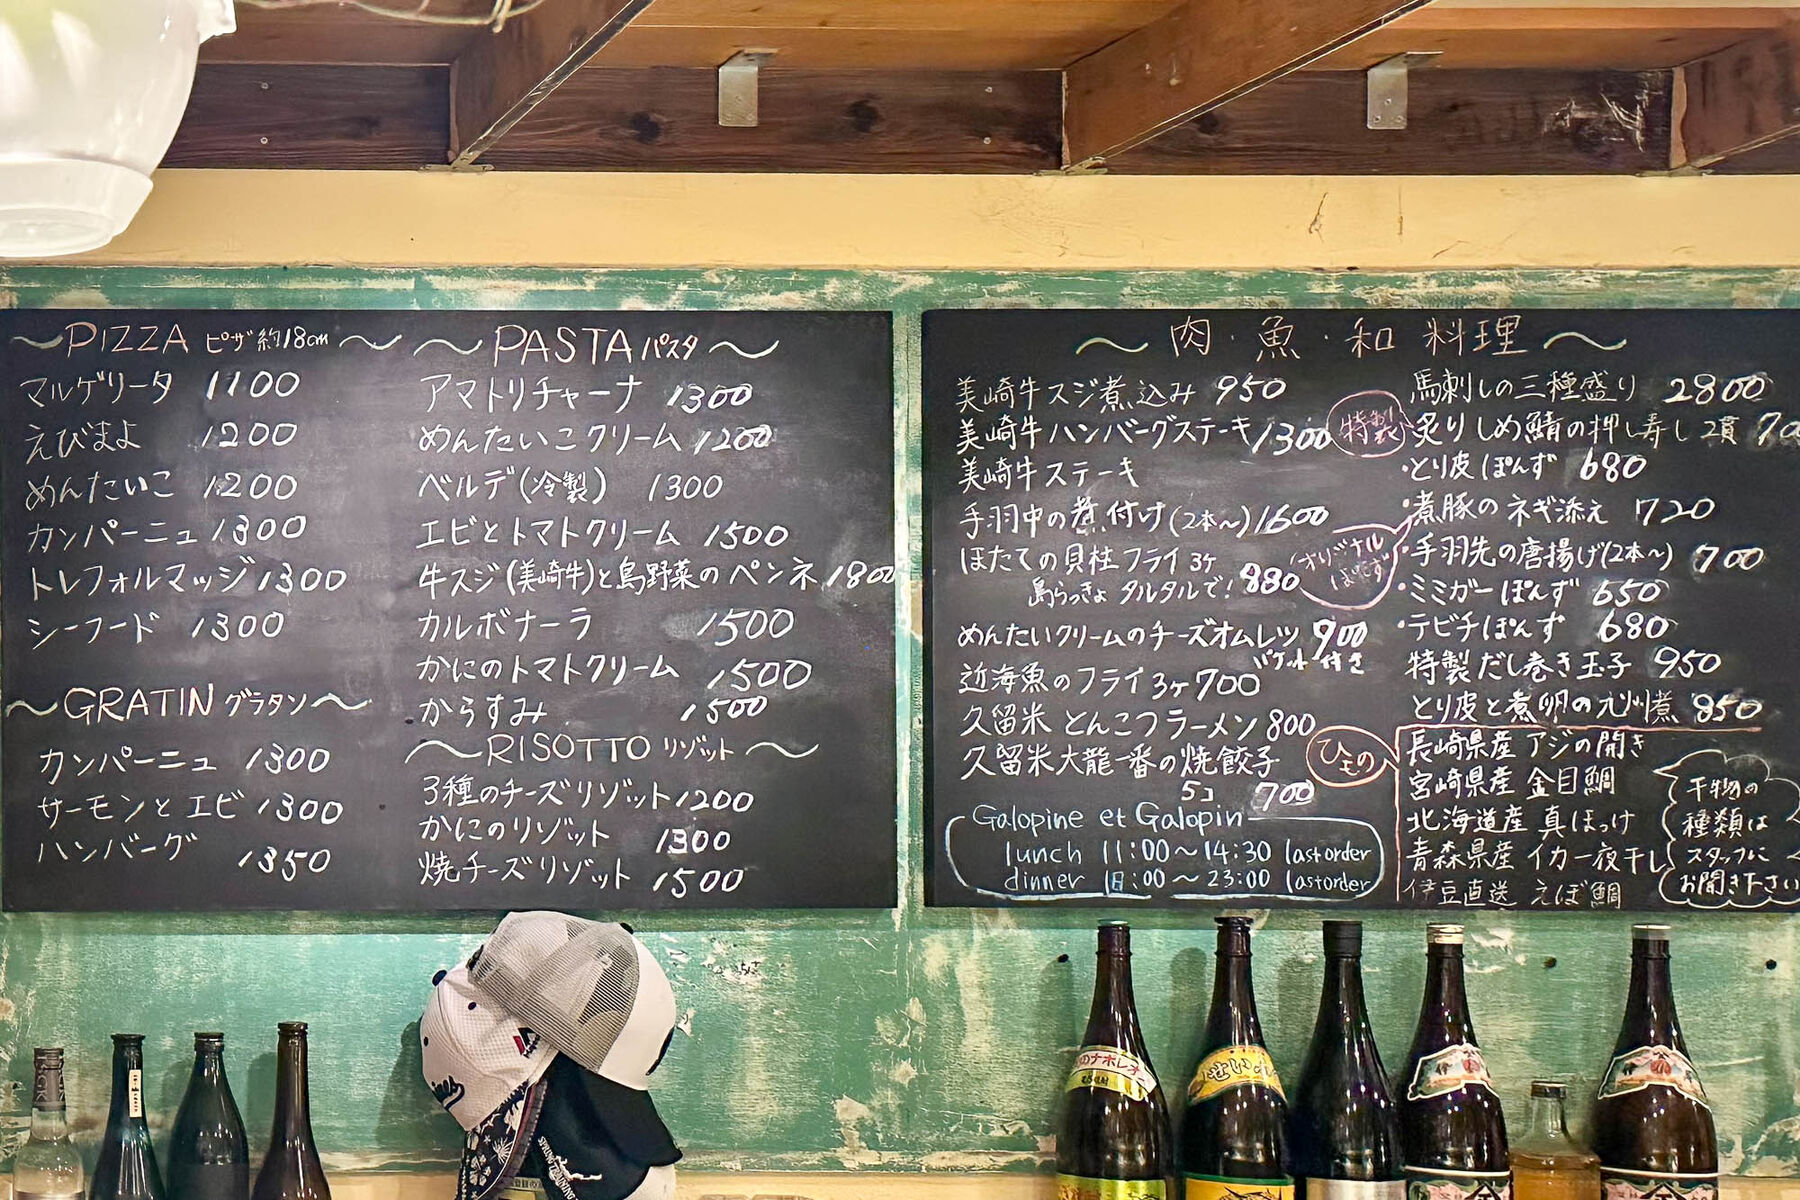 ～PIZZA ピザ 約18cm～
マルゲリータ 1100
えびまよ 1200
めんたいこ 1200
カンパーニュ 1300
トレフォルマッジ 1300
シーフード 1300
～GRATIN グラタン～
カンパーニュ 1300
サーモンとエビ 1300
ハンバーグ 1350
～PASTA パスタ～
アマトリチャーナ 1300
めんたいこクリーム 1200
ベルデ(冷製) 1300
エビとトマトクリーム 1500
牛スジ(美崎牛)と島野菜のペンネ 1800
カルボナーラ 1500
かにのトマトクリーム 1500
からすみ 1500
～RISOTTO リゾット～
3種のチーズリゾット 1200
かにのリゾット 1300
焼チーズリゾット 1500
～肉・魚・和 料理～
美崎牛スジ煮込み 950
美崎牛ハンバーグステーキ 1300
美崎牛ステーキ
手羽中の煮付け(2本～) 1600
ほたての貝柱フライ 3ヶ
島らっきょ タルタルで! 880
めんたいクリームのチーズオムレツ 900
バケット付き
近海魚のフライ 3ヶ 700
久留米 とんこつラーメン 800
久留米大龍一番の焼餃子
5コ 700
Galopine et Galopin
lunch 11:00～14:30 last order
dinner 18:00～23:00 last order
馬刺しの三種盛り 2800
特製
炙りしめ鯖の押し寿し 2貫
・とり皮ぽんず 680
・煮豚のネギ添え 720
オリジナル
ぽんず
・手羽先の唐揚げ(2本～) 700
・ミミガーぽんず 650
・テビチぽんず 680
特製だし巻き玉子 950
とり皮と煮卵の九州煮 850
ひもの
長崎県産 アジの開き
宮崎県産 金目鯛
北海道産 真ほっけ
青森県産 イカ一夜干し
伊豆直送 えぼ鯛
干物の
種類は
スタッフに
お聞き下さい
SPRING TRAINING
のナポレオン